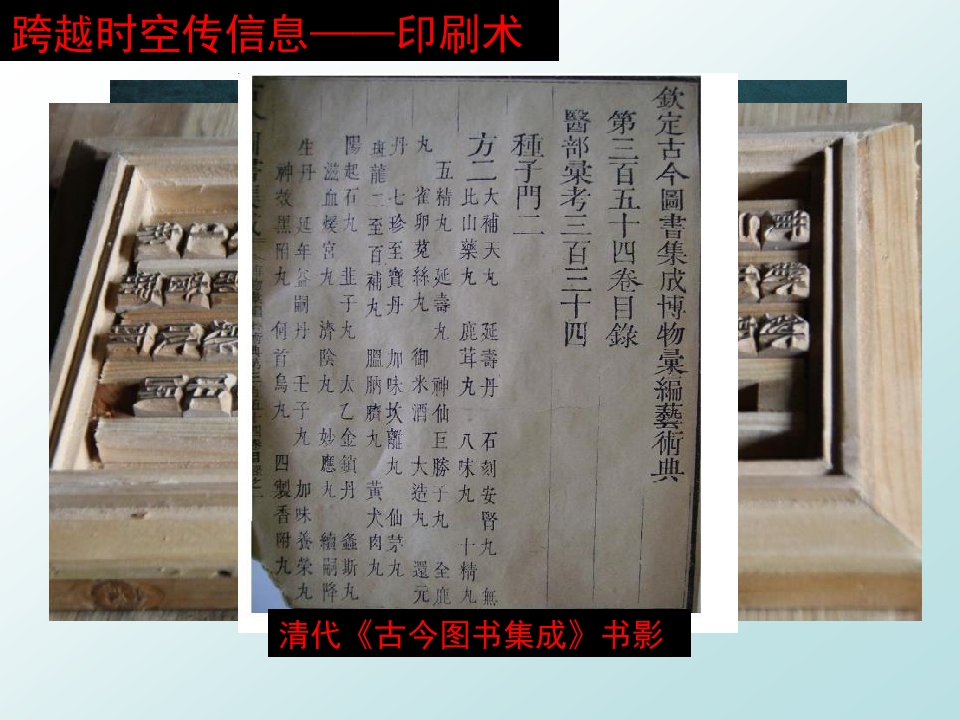 跨越时空传信息——印刷术
欽定古今圖書集成博物彙編藝術典
第三百五十四卷目錄
醫部彙考三百三十四
種子門二
方二
大補天丸 延壽丹 石刻安腎丸 無
比山藥丸 鹿茸丸 八味丸 十精丸
五精丸 延壽丸 神仙巨勝子丸 全鹿
丸 雀卵菟絲丸 御米酒 大造丸 還元
丹 七珍至寶丹 加味坎離丸 仙茅丸
斑龍二至百補丸 膃肭臍丸 黃犬肉丸
陽起石丸 韭子丸 太乙金鎖丹 螽斯丸
滋血煖宮丸 濟陰丸 妙應丸 續嗣降
生丹 延年益嗣丹 壬子丸 加味養榮丸
神效黑附丸 何首烏丸 四製香附丸
清代《古今图书集成》书影